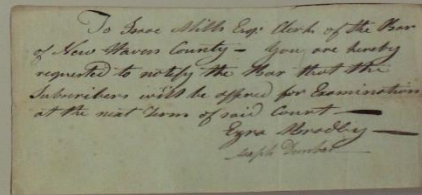 To Isaac Mills Esqr Clerk of the Bar
of New Haven County – You are hereby
requested to notify the Bar that the
Subscribers will be offered for Examination
at the next Term of said Court —
Ezra Bradley —
Joseph Dunbar